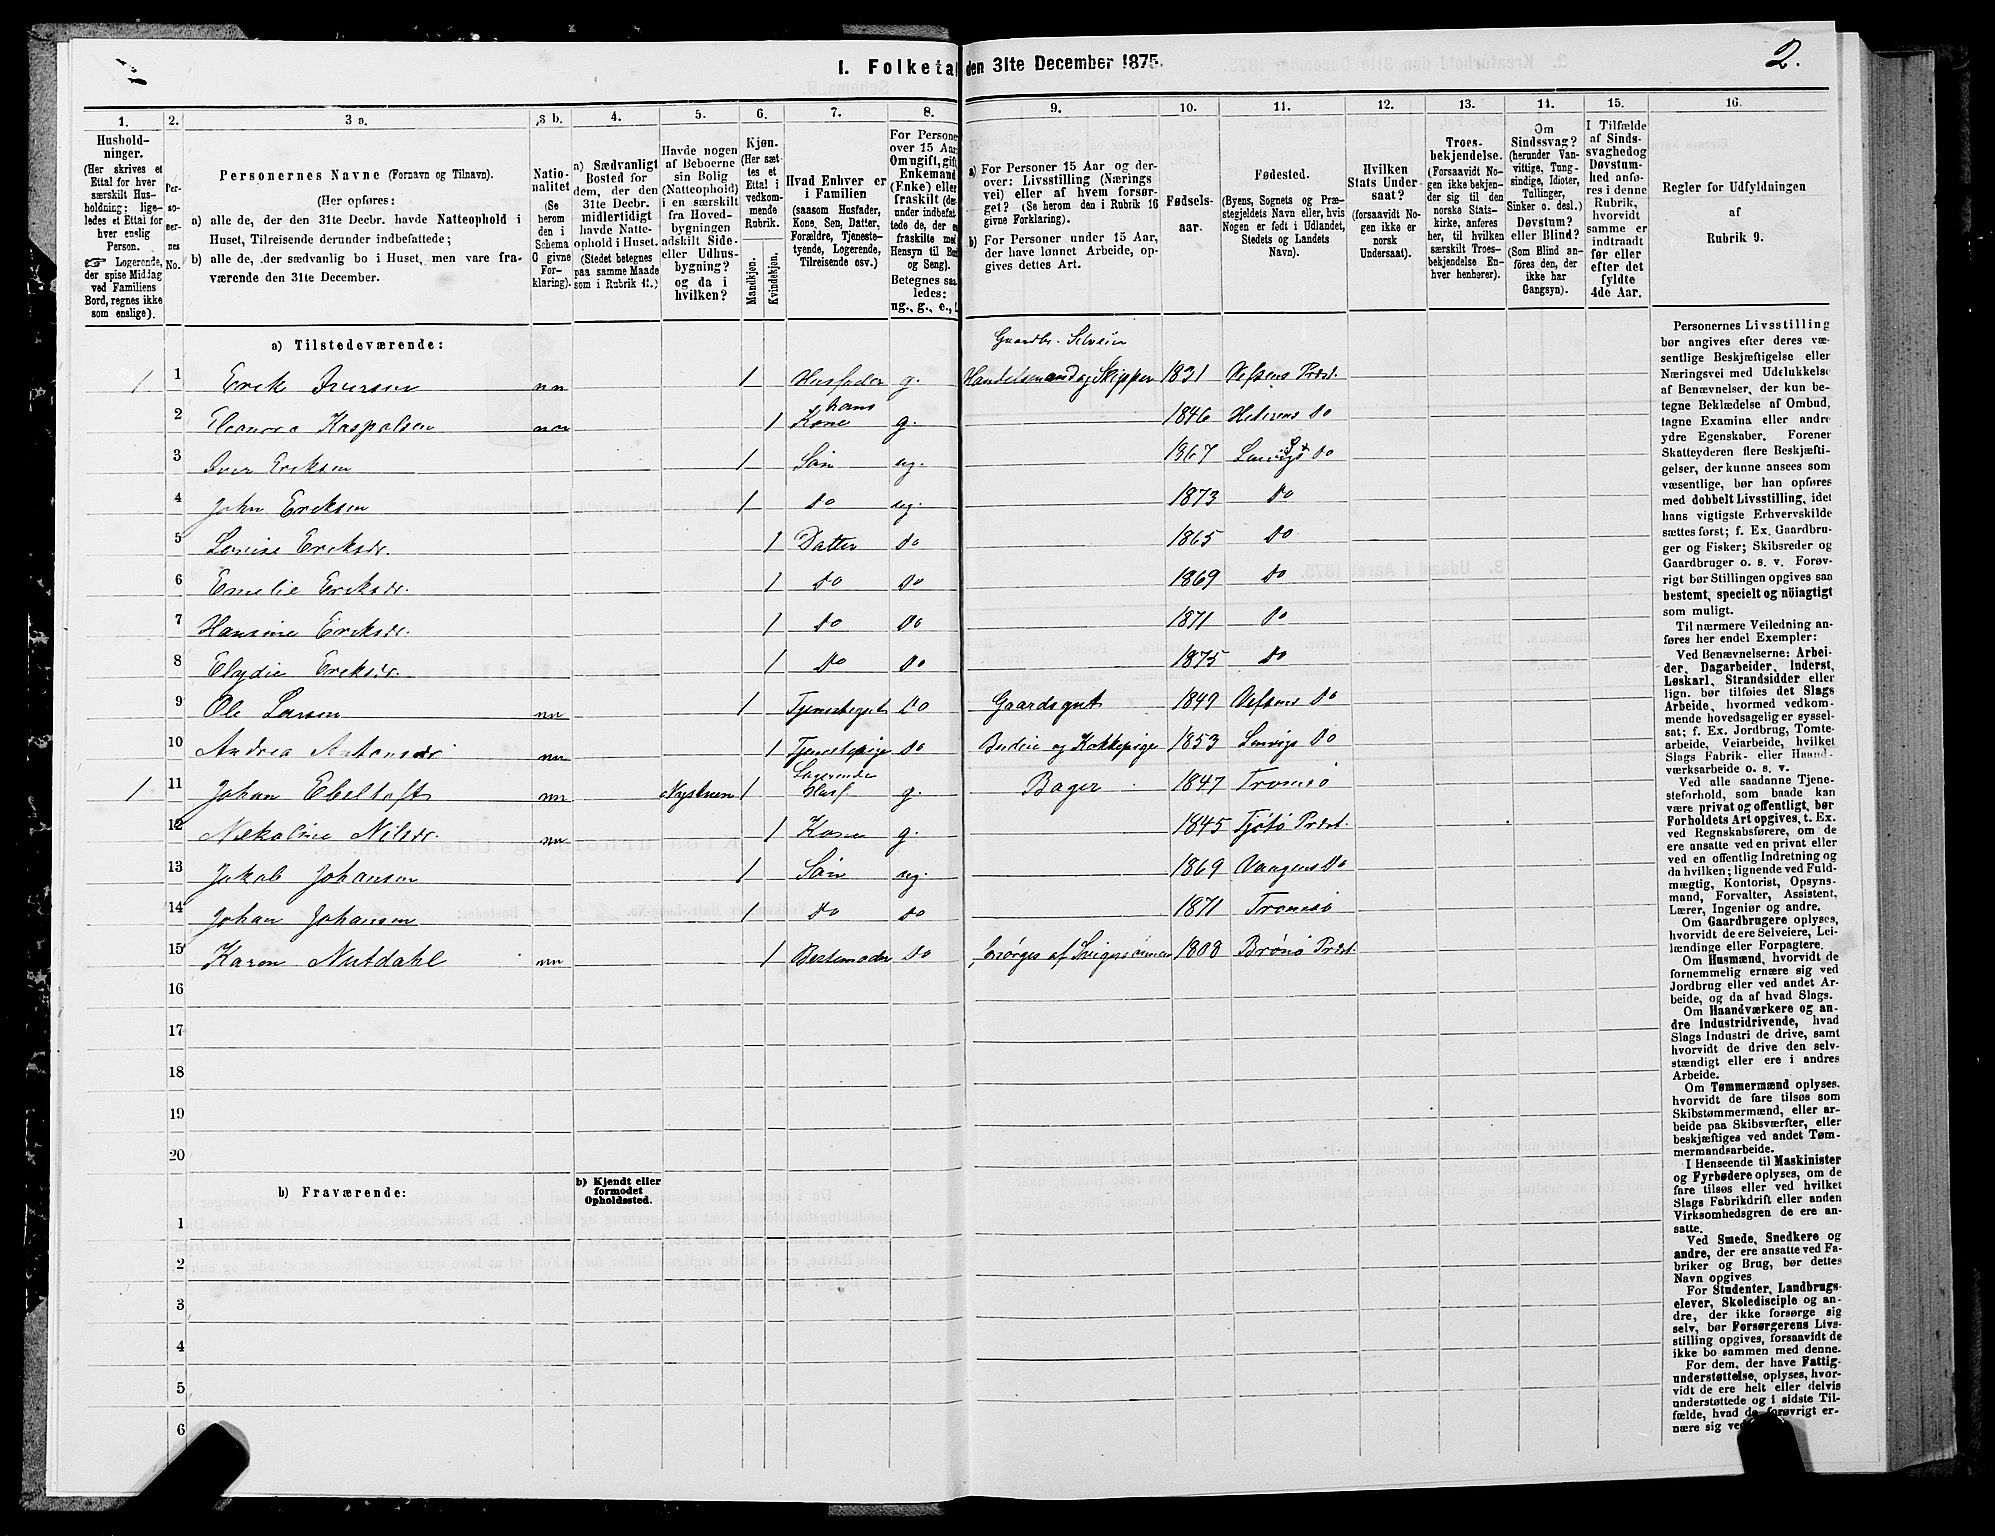 2.
I. Folketa den 31te December 1875.
1. 2. 3 a. 3 b. 4. 5. 6. 7. 8. 9. 10. 11. 12. 13. 14. 15. 16.
Hushold-
ninger.
(Her skrives et
Ettal for hver
særskilt Hus-
holdning; lige-
ledes et Ettal for
hver enslig
Person.
☞ Logerende,
der spise Middag
ved Familiens
Bord, regnes ikke
som enslige).
Per-
so-
ner-
nes
No.
Personernes Navne (Fornavn og Tilnavn).
(Her opføres:
a) alle de, der den 31te Decbr. havde Natteophold i
Huset, Tilreisende derunder indbefattede;
b) alle de, der sædvanlig bo i Huset, men vare fra-
værende den 31te December.
Natio-
nalitet
(Se
herom
den i
Schema
G givne
For-
klaring).
a) Sædvanligt
Bosted for
dem, der den
31te Decbr.
midlertidigt
havde Natte-
ophold i Huset.
(Stedet betegnes
paa samme Maade
som i Rubrik 11.)
Havde nogen
af Beboerne
sin Bolig
(Natteophold)
i en særskilt
fra Hoved-
bygningen
adskilt Side-
eller Udhus-
bygning?
og da i
hvilken?
Kjøn.
(Her sæt-
tes et
Ettal i
vedkom-
mende
Rubrik.
Mandkjøn.
Kvindekjøn.
Hvad Enhver er
i Familien
(saasom Husfader,
Kone, Søn, Datter,
Forældre, Tjeneste-
tyende, Logerende,
Tilreisende osv.)
For Persone
over 15 Aar
Om ugift, gift
Enkemand
(Enke) eller
fraskilt (der-
under indbefat
tede de, der e
fraskilte med
Hensyn til Bo
og Seng).
Betegnes saa
ledes:
ug., g., e.,
a) For Personer 15 Aar og der-
over: Livsstilling (Nærings
vei) eller af hvem forsør-
get? (Se herom den i Rubrik 16
givne Forklaring).
b) For Personer under 15 Aar,
der have lønnet Arbeide, op-
gives dettes Art.
Fødsels-
aar.
Fødested.
(Byens, Sognets og Præ-
stegjeldets Navn eller, hvis
Nogen er født i Udlandet,
Stedets og Landets
Navn).
Hvilken
Stats Under-
saat?
(forsaavidt No-
gen ikke er
norsk
Undersaat).
Troes-
bekjendelse.
(Forsaavidt No-
gen ikke bekjen-
der sig til den
norske Stats-
kirke, anføres
her, til hvilken
særskilt Troes-
bekjendelse En-
hver henhører).
Om
Sindssvag?
(herunder Van-
vittige, Tung-
sindige, Idioter,
Tullinger,
Sinker o. desl.)
Døvstum?
eller Blind?
(Som Blind an-
føres den, der
ikke har
Gangsyn).
I Tilfælde
af Sinds-
svaghed og
Døvstum-
hed anfø-
res i denne
Rubrik,
hvorvidt
samme er
indtraadt
før eller
efter det
fyldte
4de Aar.
Regler for Udfyldningen
af
Rubrik 9.
a) Tilstedeværende:
Gaardbr. Selveier
1 1 Erik Iversen nn 1 Husfader g. Handelsmand og Skipper 1831 Vefsens Præst.
2 Eleonora Kaspalsen nn 1 hans Kone g. 1846 Do
3 Iver Eriksen 1 Søn ug. 1867 Lenvigs Do
4 John Eriksen 1 Do ug. 1873 Do
5 Lovise Eriksdr. 1 Datter Do 1865 Do
6 Emelie Eriksdr. 1 Do Do 1869 Do
7 Hansine Eriksdr. 1 Do Do 1871 Do
8 Elydie Eriksdr. 1 Do Do 1875 Do
9 Ole Larsen nn 1 Tjenestegut Do Gaardsgut 1849 Vefsens Do
10 Andrea Antonsdr nn 1 Tjenestepige Do Budeie og Kokkepige 1853 Lenvigs Do
1 11 Johan Ebeltoft nn Nystuen 1 Logerende Husf g. Bager 1847 Tromsø
12 Nekoline Nilsdr. nn 1 Kone g. 1845 Tjøtø Præst.
13 Jakob Johansen 1 Søn ug. 1869 Vaagens Do
14 Johan Johansen 1 Do Do 1871 Tromsø
15 Karen Nutdahl nn 1 Bestemoder Do forsørges af 1808 Brønø Præst.
16
17
18
19
20
b) Fraværende:
b) Kjendt eller
formodet
Opholdssted.
1
2
3
4
5
6
Personernes Livsstilling
bør angives efter deres væ-
sentlige Beskjæftigelse eller
Næringsvei med Udelukkelse
af Benævnelser, der kun be-
tegne Beklædelse af Ombud,
tagne Examina eller andre
ydre Egenskaber. Forener
Skatteyderen flere Beskjæfti-
gelser, der kunne ansees som
væsentlige, bør han opføres
med dobbelt Livsstilling, idet
hans vigtigste Erhvervskilde
sættes først; f. Ex. Gaardbru-
ger og Fisker; Skibsreder og
Gaardbruger o. s. v. Forøv-
rigt bør Stillingen opgives saa
bestemt, specielt og nöiagtigt
som muligt.
Til nærmere Veiledning an-
føres her endel Exempler:
Ved Benævnelserne: Arbei-
der, Dagarbeider, Inderst,
Løskarl, Strandsidder eller
lign. bør tilføies det Slags
Arbeide, hvormed vedkom-
mende hovedsagelig er syssel-
sat; f. Ex. Jordbrug, Tomte-
arbeide, Veiarbeide, hvilket
Slags Fabrik- eller Haand-
værksarbeide o. s. v.
Ved alle saadanne Tjene-
steforhold, som baade kan
være privat og offentligt, bør
Forholdets Art opgives, t. Ex.
ved Regnskabsførere, om de
ere ansatte ved en privat eller
ved en offentlig Indretning og
da hvilken; lignende ved Fuld-
mægtig, Kontorist, Opsyns-
mand, Forvalter, Assistent,
Lærer, Ingeniør og andre.
Om Gaardbrugere oplyses,
hvorvidt de ere Selveiere, Lei-
lændinge eller Forpagtere.
Om Husmænd, hvorvidt de
fornemmelig ernære sig ved
Jordbrug eller ved andet Ar-
beide, og da af hvad Slags.
Om Haandværkere og an-
dre industridrivende, hvad
Slags Industri de drive, samt
hvorvidt de drive den selv-
stændigt eller ere i andres
Arbeide.
Om Tømmermænd oplyses,
hvorvidt de fare tilsøs som
Skibstømmermænd, eller ar-
beide paa Skibsværfter, eller
beskjæftiges ved andet Tøm-
mermandsarbeide.
I Henseende til Maskinister
og Fyrbødere oplyses, om de
fare tilsøs eller ved hvilket
Slags Fabrikdrift eller anden
Virksomhedsgren de ere an-
satte.
Ved Smede, Snedkere og
andre, der ere ansatte ved Fa-
briker og Brug, bør dettes
Navn opgives
For Studenter, Landbrugs-
elever, Skoledisciple og an-
dre, der ikke forsørge sig
selv, bør Forsørgerens Livs-
stilling opgives, forsaavidt de
ikke bo sammen med denne.
For dem, der have Fattig-
understøttelse, oplyses, hvor-
vidt de ere helt eller delvis
understøttede og i sidste Til-
fælde, hvad de forøvrigt er-
nære sig ved